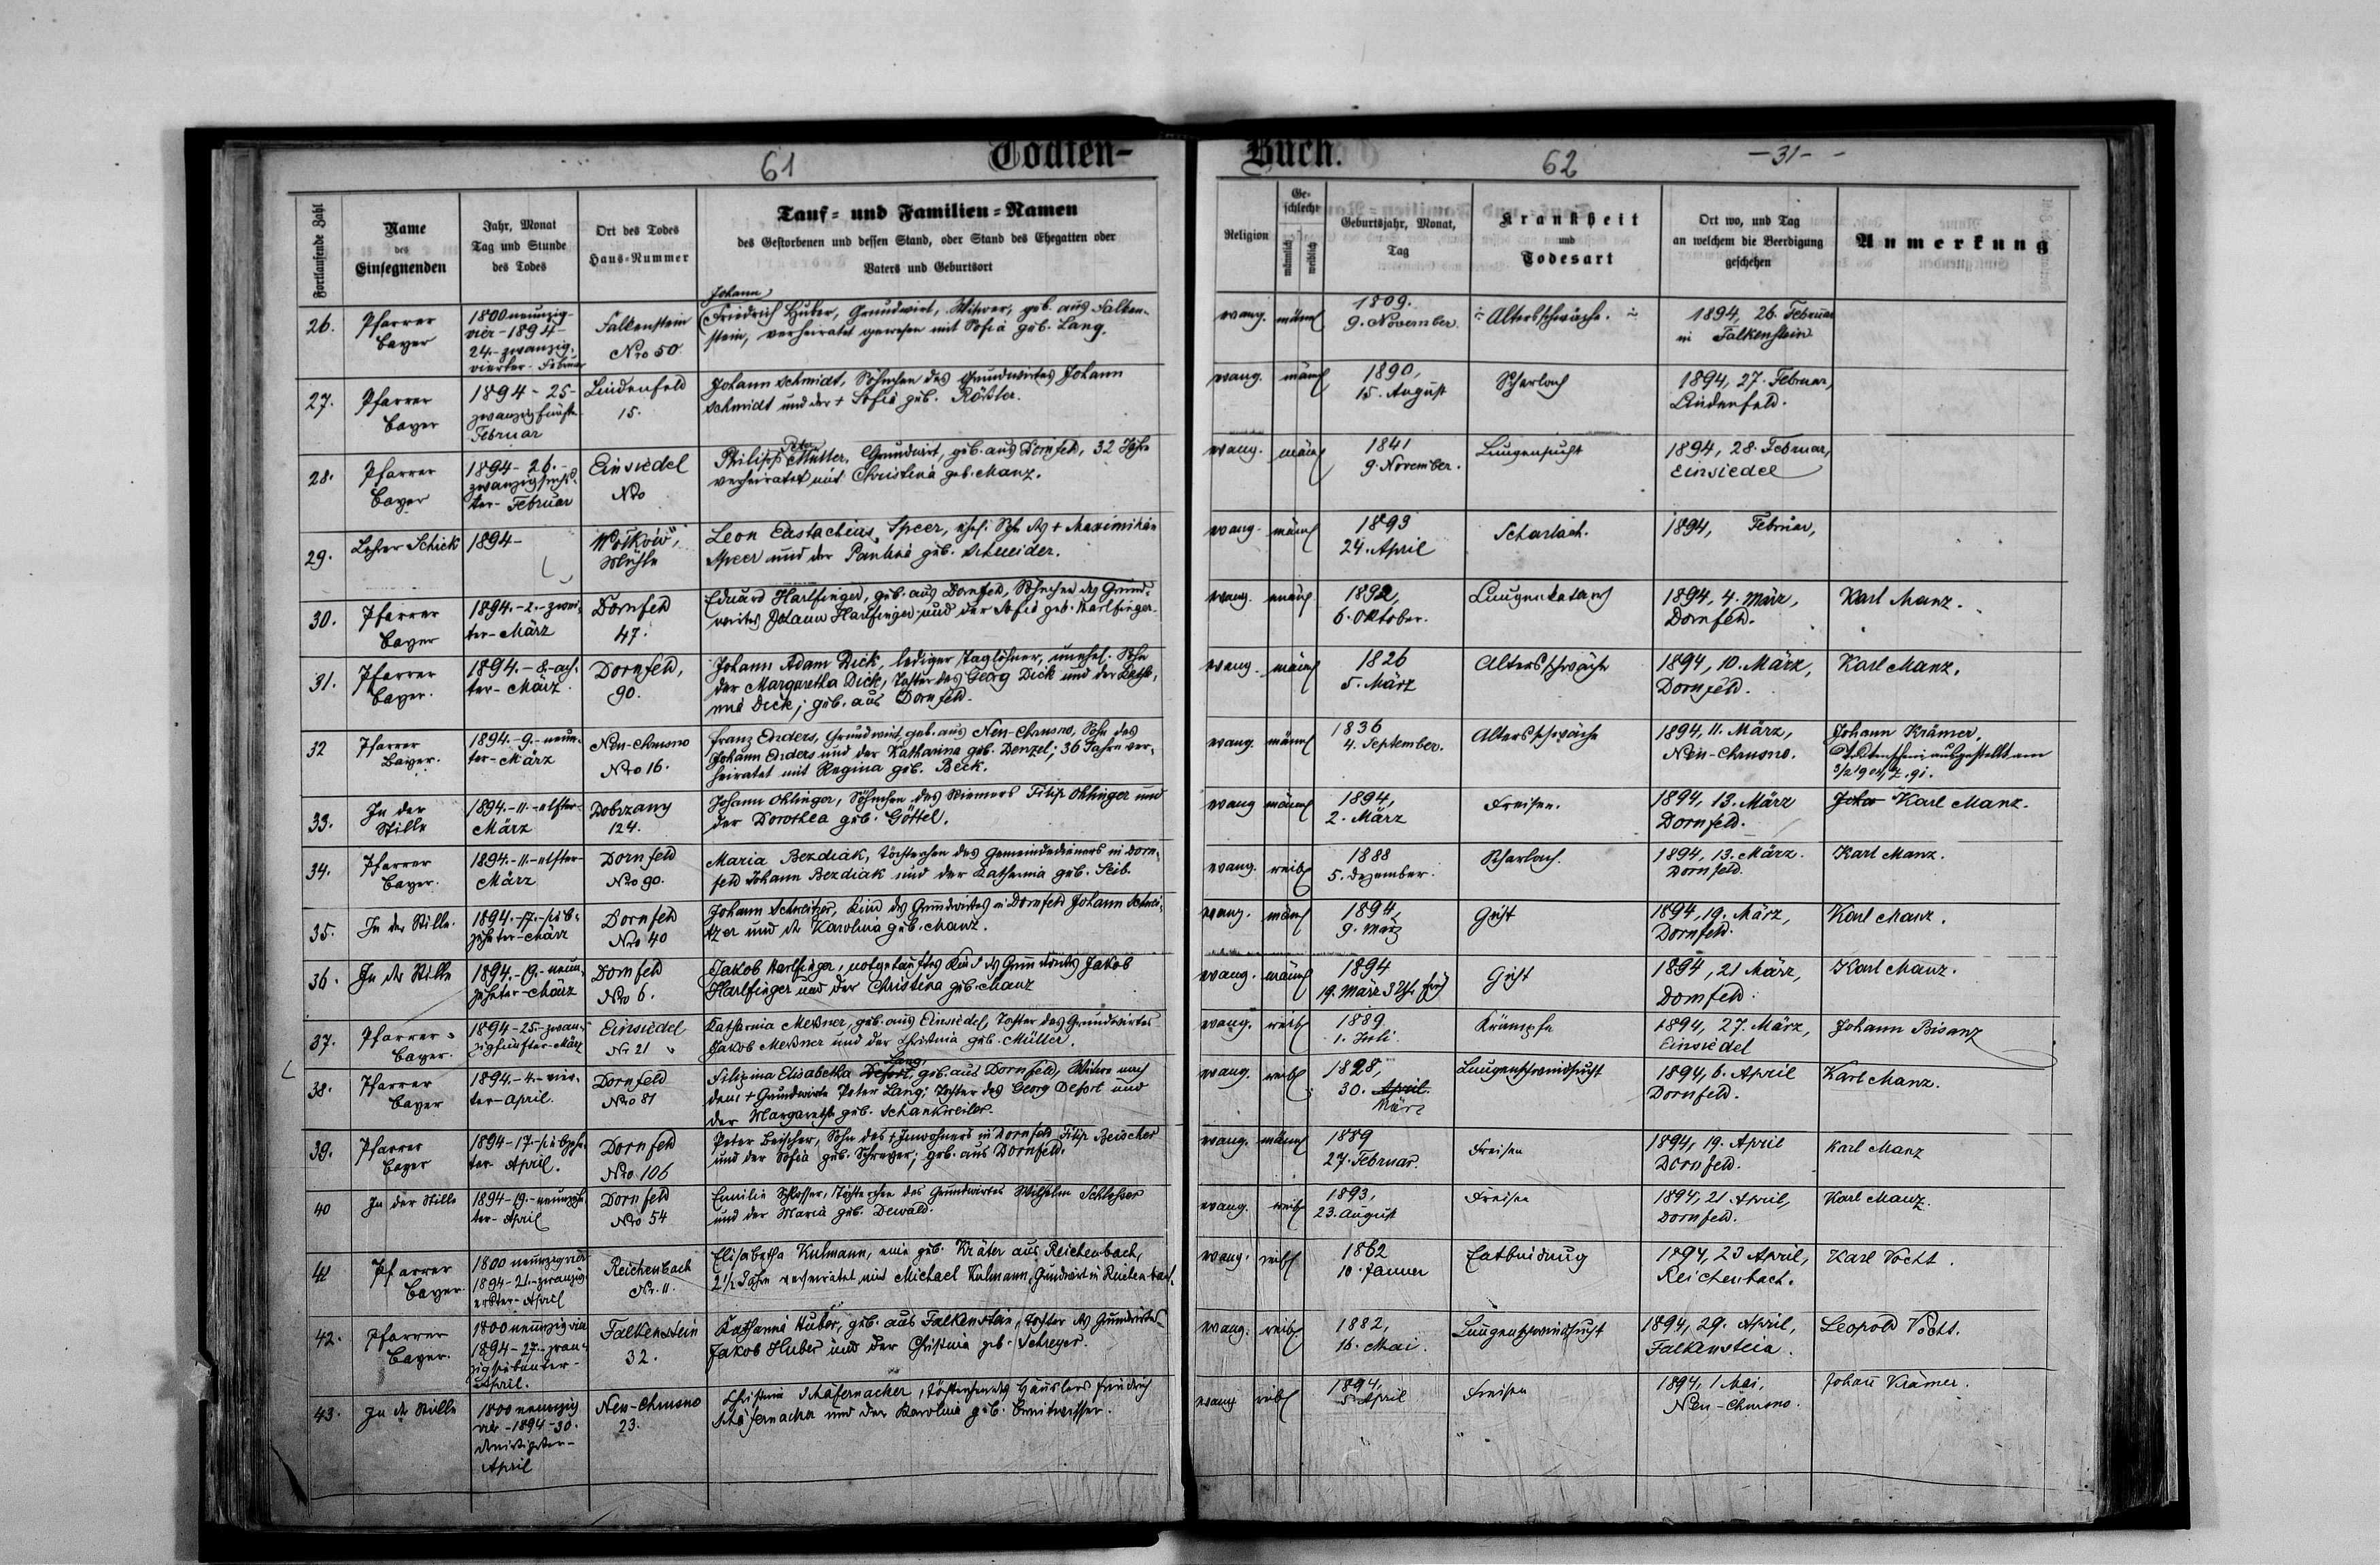 61
Todten-
Buch.
62
-31-
Fortlaufende Zahl
Name des Einsegnenden
Jahr, Monat Tag und Stunde des Todes
Ort des Todes Haus-Nummer
Tauf- und Familien-Namen
des Gestorbenen und dessen Stand, oder Stand des Ehegatten oder
Vaters und Geburtsort
Religion
Geschlecht
männlich
weiblich
Geburtsjahr, Monat, Tag
Krankheit und Todesart
Ort wo, und Tag an welchem die Beerdigung geschehen
Anmerkung
26. Pfarrer Bayer
1800neunzig-
vier-1894-
24.-zwanzig-
vierter-Februar
Falkenstein
Nro 50
Johann
Friedrich Huber, Grundwirt, Witwer, geb. aus Falken-
stein, verheiratet gewesen mit Sofia geb. Lang.
evang. männl
1809.
9. November.
Altersschwäche.
1894, 26. Februar
in Falkenstein
27. Pfarrer Bayer
1894-25-
zwanzigfünfte
Februar
Lindenfeld
15.
Johann Schmidt, Söhnchen des Grundwirtes Johann
Schmidt und der + Sofia geb. Rößler.
evang. männl
1890,
15. August
Scharlach
1894, 27. Februar,
Lindenfeld.
28. Pfarrer Bayer
1894-26.-
zwanzigsechs-
ter-Februar
Einsiedel
Nro
Philipp Müller, Grundwirt, geb. aus Dornfeld, 32 Jahre
verheiratet mit Christina geb. Manz.
evang. männl
1841
9. November.
Lungensucht
1894, 28. Februar,
Einsiedel
29. Lehrer Schick
1894-
"Wołków"
Mühle
Leon Eustachius Speer, ehel. Sohn des + Maximilian
Speer und der Paulina geb. Schneider.
evang. männl
1893
24. April
Scharlach.
1894, Februar,
30. Pfarrer Bayer
1894.-2.-zwei-
ter-März
Dornfeld
47.
Eduard Harlfinger, geb. aus Dornfeld, Söhnchen des Grund-
wirtes Johann Harlfinger und der Sofia geb. Harlfinger.
evang. männl
1892,
6. Oktober.
Lungenkatarrh
1894, 4. März,
Dornfeld.
Karl Manz.
31. Pfarrer Bayer.
1894.-8.-ach-
ter-März.
Dornfeld,
90.
Johann Adam Dick, lediger Taglöhner, unehel. Sohn
der Margaretha Dick, Tochter des Georg Dick und der
Dick; geb. aus Dornfeld.
evang. männl
1826
5. März
Altersschwäche
1894, 10. März,
Dornfeld.
Karl Manz.
32 Pfarrer Bayer.
1894.-9.-neun-
ter-März
Neu-Chrusno
Nro 16.
Franz Enders, Grundwirt, geb. aus Neu-Chrusno, Sohn des
Johann Enders und der Katharina geb. Denzel; 36 Jahre ver-
heiratet mit Regina geb. Beck.
evang. männl
1836
4. September.
Altersschwäche
1894, 11. März,
Neu-Chrusno.
Johann Krämer.
Totenschein ausgestellt am
33. In der Stille
1894.-11.-elfter-
März
Dobrzany
124.
Johann Ohlinger, Söhnchen des Riemers Filip Ohlinger und
der Dorothea geb. Göttel.
evang männl
1894,
2. März
Freisen.
1894, 13. März
Dornfeld.
Karl Manz.
34. Pfarrer Bayer.
1894.-11.-elfter-
März
Dornfeld
Nro 90.
Maria Bezdiak, Töchterchen des Gemeindedieners in Dorn-
feld Johann Bezdiak und der Katharina geb. Seib.
evang. weibl
1888
5. Dezember.
Scharlach.
1894, 13. März.
Dornfeld.
Karl Manz.
35. In der Stille.
1894.-17.-sieb-
zehnter-März
Dornfeld
Nro 40
Johann Schweitzer, Kind des Grundwirtes in Dornfeld Johann Schwei-
tzer und der Karolina geb. Manz.
evang. männl
1894,
9. März
Gicht
1894, 19. März,
Dornfeld.
Karl Manz.
36. In der Stille
1894.-19.-neun-
zehnter-März
Dornfeld
Nro 6.
Jakob Harlfinger, notgetauftes Kind des Grundwirtes Jakob
Harlfinger und der Christina geb. Manz
evang. männl
1894
19. März 3 Uhr früh
Gicht
1894, 21 März,
Dornfeld.
Karl Manz.
37. Pfarrer Bayer.
1894-25.-zwan-
zigfünfter-März
Einsiedel
Nr 21
Katharina Meßner, geb. aus Einsiedel, Tochter des Grundwirtes
Jakob Meßner und der Christina geb. Müller.
evang. weibl
1889
1. Juli.
Krämpfe
1894, 27. März,
Einsiedel
Johann Bisanz
38. Pfarrer Bayer
1894.-4.-vier-
ter-April.
Dornfeld
Nro 81
Lang,
Filipina Elisabetha Defort, geb. aus Dornfeld, Witwe nach
dem + Grundwirte Peter Lang; Tochter des Georg Defort und
der Margaretha geb. Schankweiler.
evang. weibl
1828,
30. April.
März
Lungenschwindsucht
1894, 6. April
Dornfeld.
Karl Manz.
39. Pfarrer Bayer
1894-17.-siebzehn-
ter April.
Dornfeld
Nro 106
Peter Beischer, Sohn des + Inwohners in Dornfeld Filip Beischer
und der Sofia geb. Schreyer; geb. aus Dornfeld.
evang. männl
1889
27. Februar.
Freisen
1894, 19. April
Dornfeld.
Karl Manz
40 In der Stille
1894-19.-neunzehn-
ter-April
Dornfeld
Nro 54
Emilie Schlosser, Töchterchen des Grundwirtes Wilhelm Schlosser
und der Maria geb. Dewald.
evang. weibl
1893,
23. August
Freisen
1894, 21 April,
Dornfeld.
Karl Manz.
41 Pfarrer Bayer.
1800 neunzigvier
1894-21.-zwanzig-
erster-April
Reichenbach
Nr. 11.
Elisabetha Kulmann, eine geb. Kräter aus Reichenbach,
2 1/2 Jahre verheiratet mit Michael Kulmann, Grundwirt in Reichenbach.
evang. weibl
1862
10. Jänner
Entbindung
1894, 23 April,
Reichenbach.
Karl Vocht.
42. Pfarrer Bayer.
1800 neunzigvier
1894-27.-zwan-
zigsiebenter-
April.
Falkenstein
32.
Katharina Huber, geb. aus Falkenstein, Tochter des Grundwirtes
Jakob Huber und der Christina geb. Schreyer.
evang. weibl
1882,
16. Mai.
Lungenschwindsucht
1894, 29. April,
Falkenstein.
Leopold Vocht.
43. In der Stille
1800 neunzig
vier-1894-30.
dreißigster-
April
Neu-Chrusno
23.
Christina Schäfernacker, Töchterchen des Häuslers Friedrich
Schäfernacker und der Karolina geb. Breitwieser.
evang. weibl
1894,
5. April
Freisen
1894, 1 Mai,
Neu-Chrusno.
Johann Krämer.